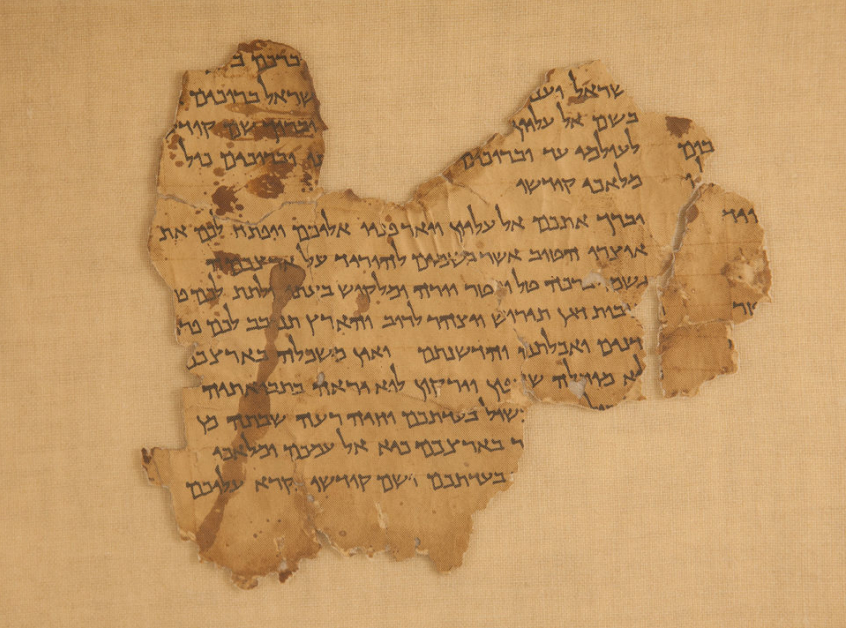 ברכם ב
שראל וענ שראל ברוכים
בשם אל עליון וברוך שם קוד
כים לעולמי עד וברוכים תו וברוכים כול
מלאכי קודשו
יברך אתכם אל עליון ויאר פניו אליכם ויפתח לכם את
אוצרו הטוב אשר בשמים להוריד על ארצכם
גשמי ברכה טל ומטר יורה ומלקוש בעתו ולתת לכם
נובות דגן תירוש ויצהר לרוב והארץ תנובב לכם פרי
דנים ואכלתם והדשנתם ואין משכלה בארצכם
לא מוחלה שדפון וירקון לוא יראה בתבואתיה
שול בעדתכם וחיה רעה שבתה מן
ר בארצכם כיא אל עמכם ומלאכי
בעדתכם ושם קודשו נקרא עליכם